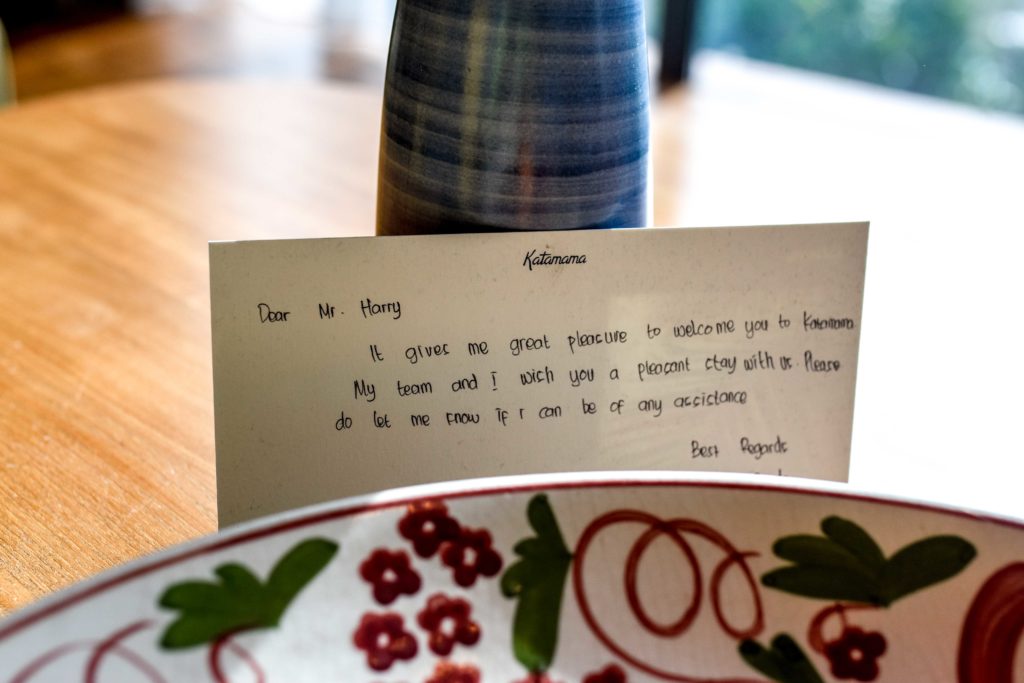 Katamama
Dear Mr. Harry
It gives me great pleasure to welcome you to Katamama
My team and I wish you a pleasant stay with us. Please
do let me know if I can be of any assistance
Best Regards